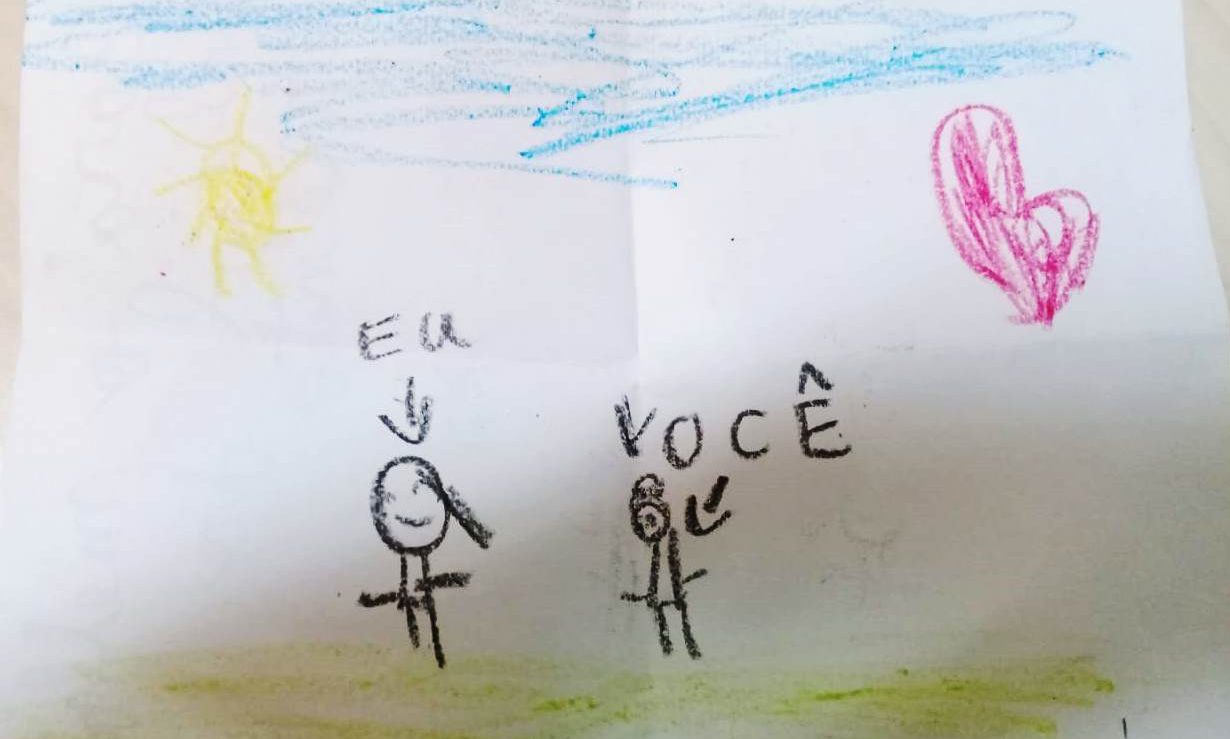 EU
VOCÊ